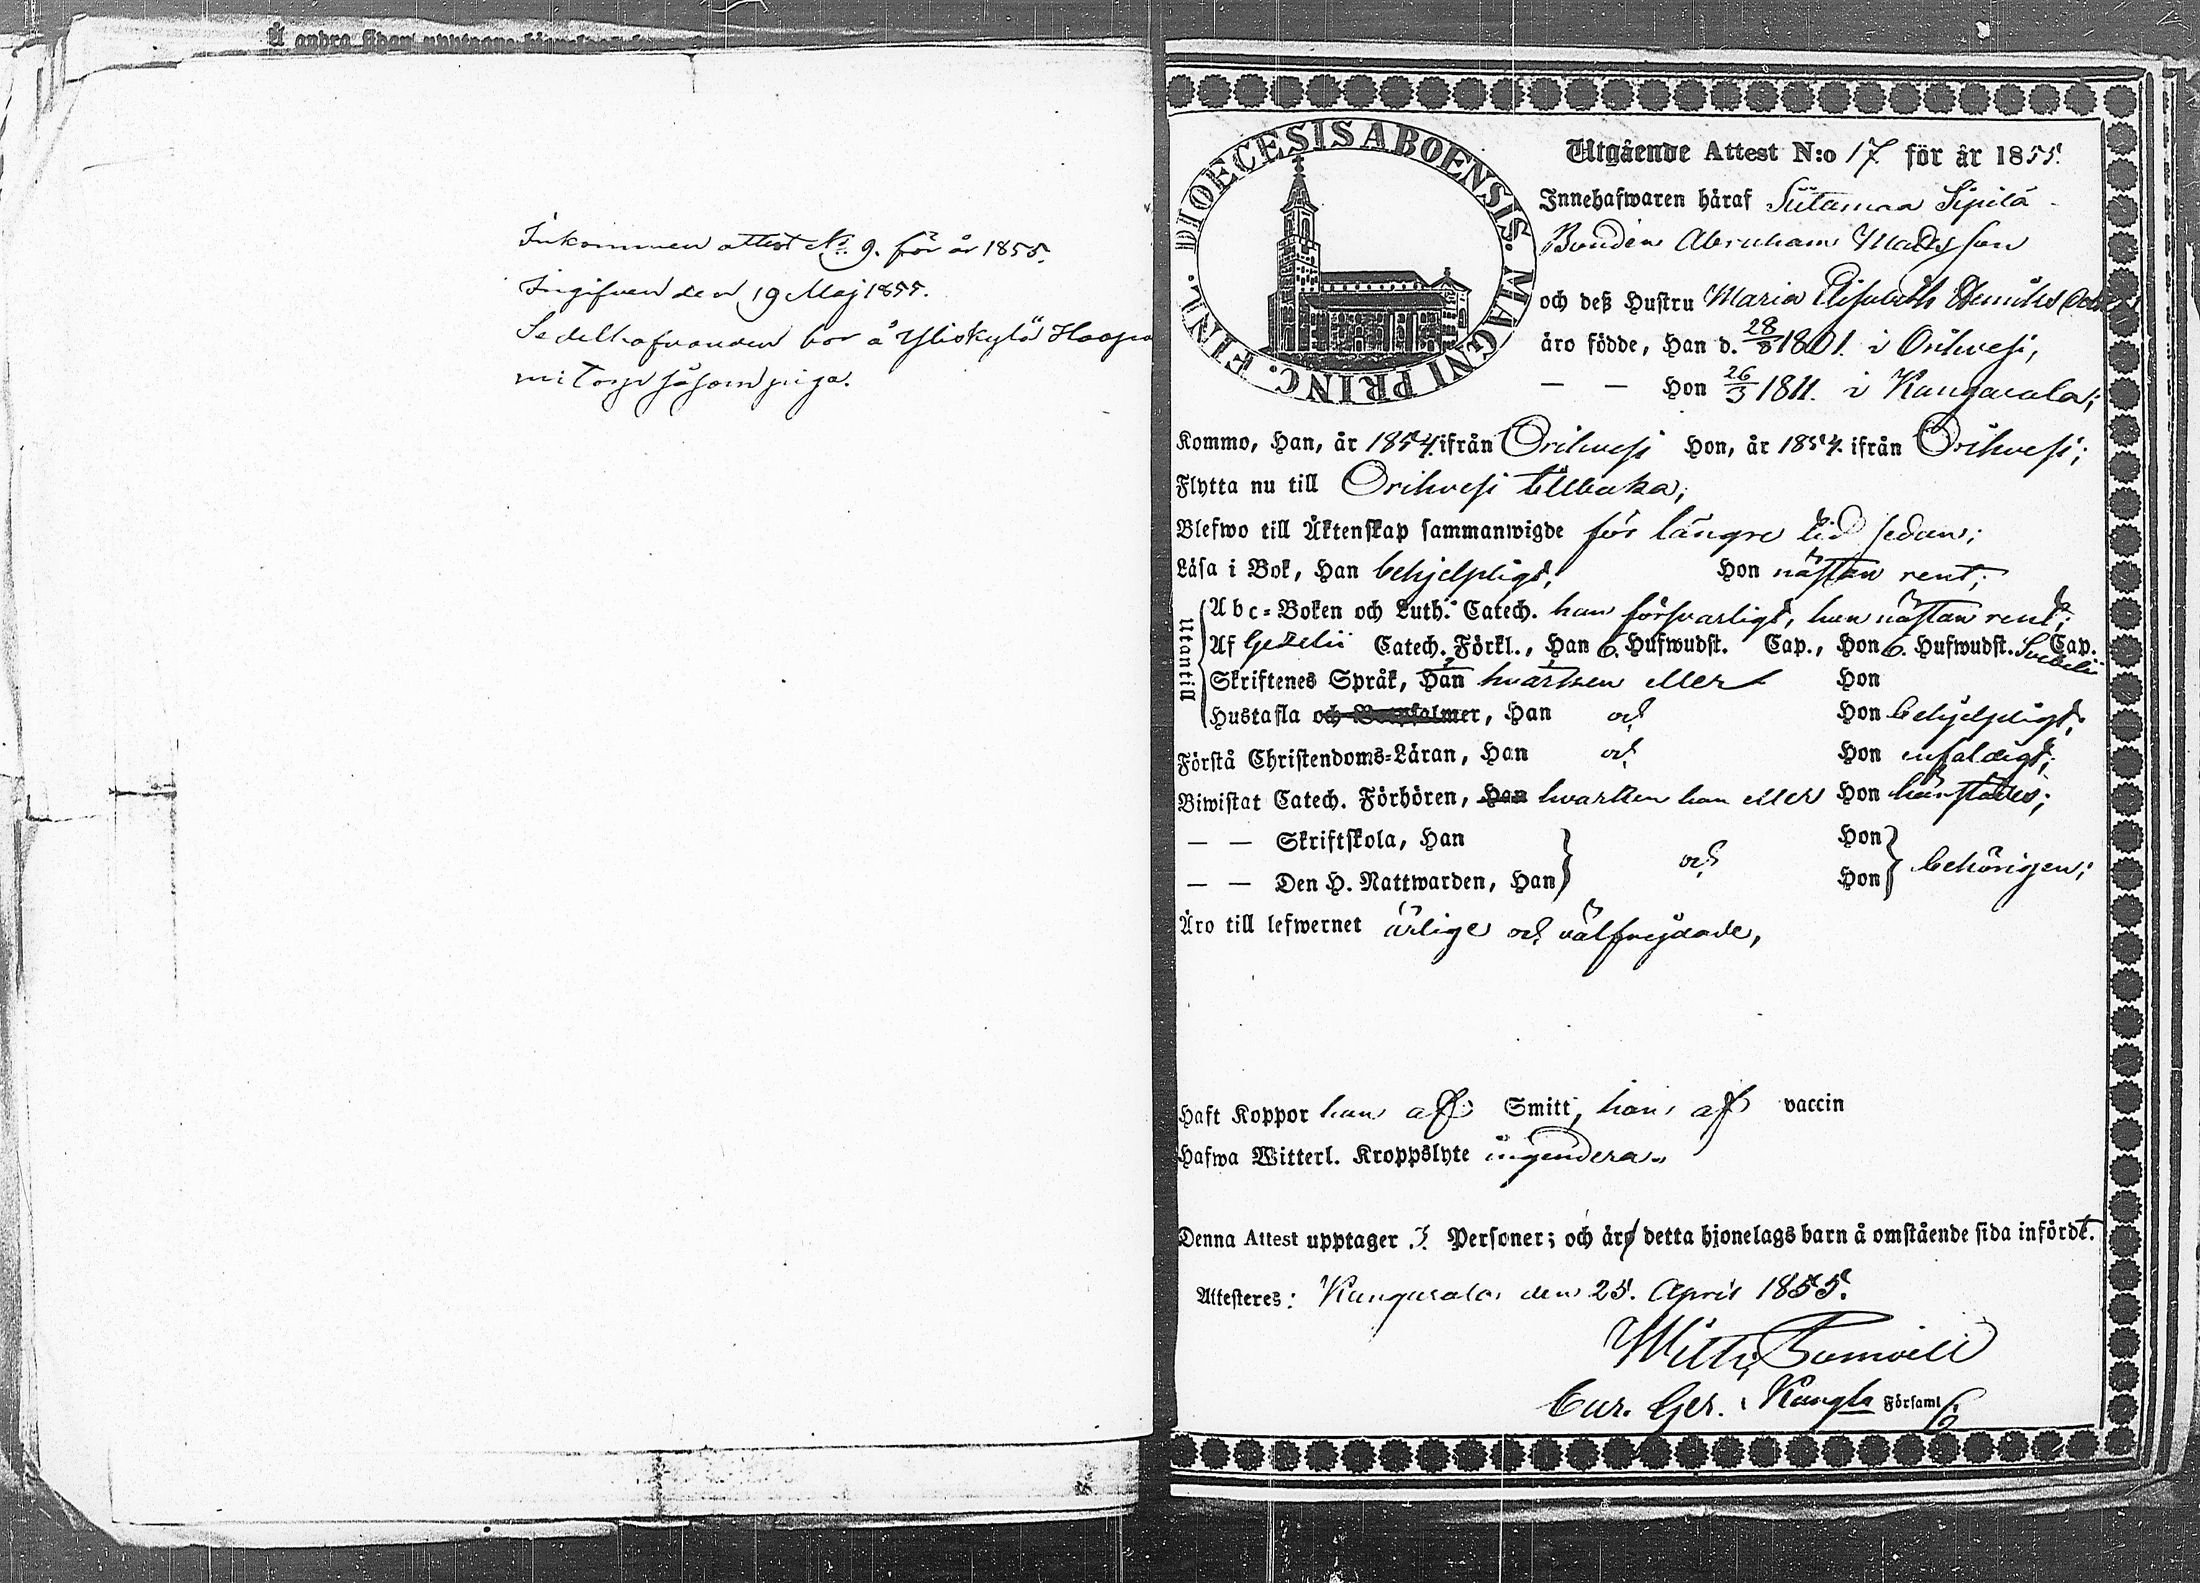 Å andra sidan upptagne
Inkommen attest No 9. för år 1855.
Ingifven den 19 Maj 1855.
Sedelhafvanden bor å Yliskylä Haapa
mi Torp såsom piga.
DIOECESIS ABOENSIS. MAGNI PRINC. FINL.
Utgående Attest N:o 17 för år 1855.
Innehafwaren häraf Siitamaa Sipilä
Bonden Abraham Mattsson
och deß Hustru Maria Elisabeth Henriks
äro födde, Han d. 28/8 1801. i Orihvesi,
— — Hon 26/3 1811. i Kangasala;
Kommo, Han, år 1854. ifrån Orihvesi Hon, år 1854. ifrån Orihvesi;
Flytta nu till Orihvesi tillbaka;
Blefwo till Äktenskap sammanwigde för längre tid sedan;
Läsa i Bok, Han behjelpligt, Hon nästan rent;
Utantill
Abc-Boken och Luth. Catech. han försvarligt, hon nästan rent;
Af Gezelii Catech. Förkl., Han 6. Hufwudst. Cap., Hon 6. Hufwudst. Svebelii Cap.
Skriftenes Språk, Han hvarken eller Hon
Hustafla och Botpsalmer, Han och Hon behjelpligt;
Förstå Christendoms-Läran, Han och Hon enfaldigt;
Biwistat Catech. Förhören, Han hvarken han eller Hon härstädes;
— — Skriftskola, Han Hon
och behörigen;
— — Den H. Nattwarden, Han Hon
Äro till lefwernet ärlige och välfrejdade,
Haft Koppor han af Smitt, hon af vaccin
Hafwa Witterl. Kroppslyte ingendera.
Denna Attest upptager 3. Personer; och äro detta hjonelags barn å omstående sida infördt.
Attesteres: Kangasala den 25. April 1855.
Wilh.
Cur. Ger. i Kangla Församl